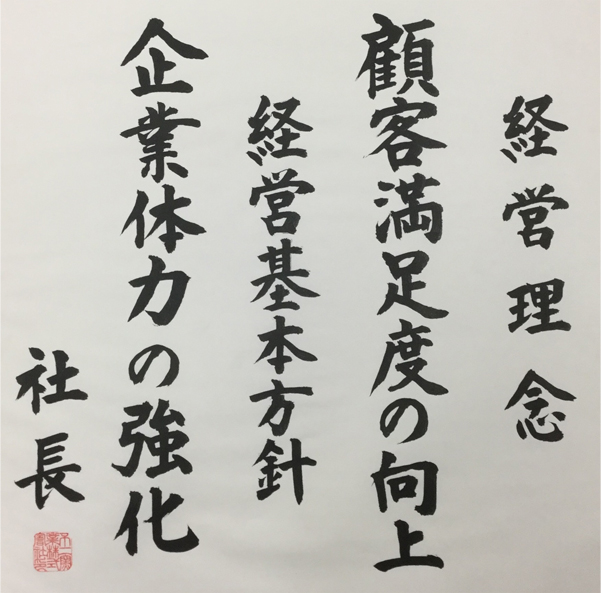 経営理念
顧客満足度の向上
経営基本方針
企業体力の強化
社長